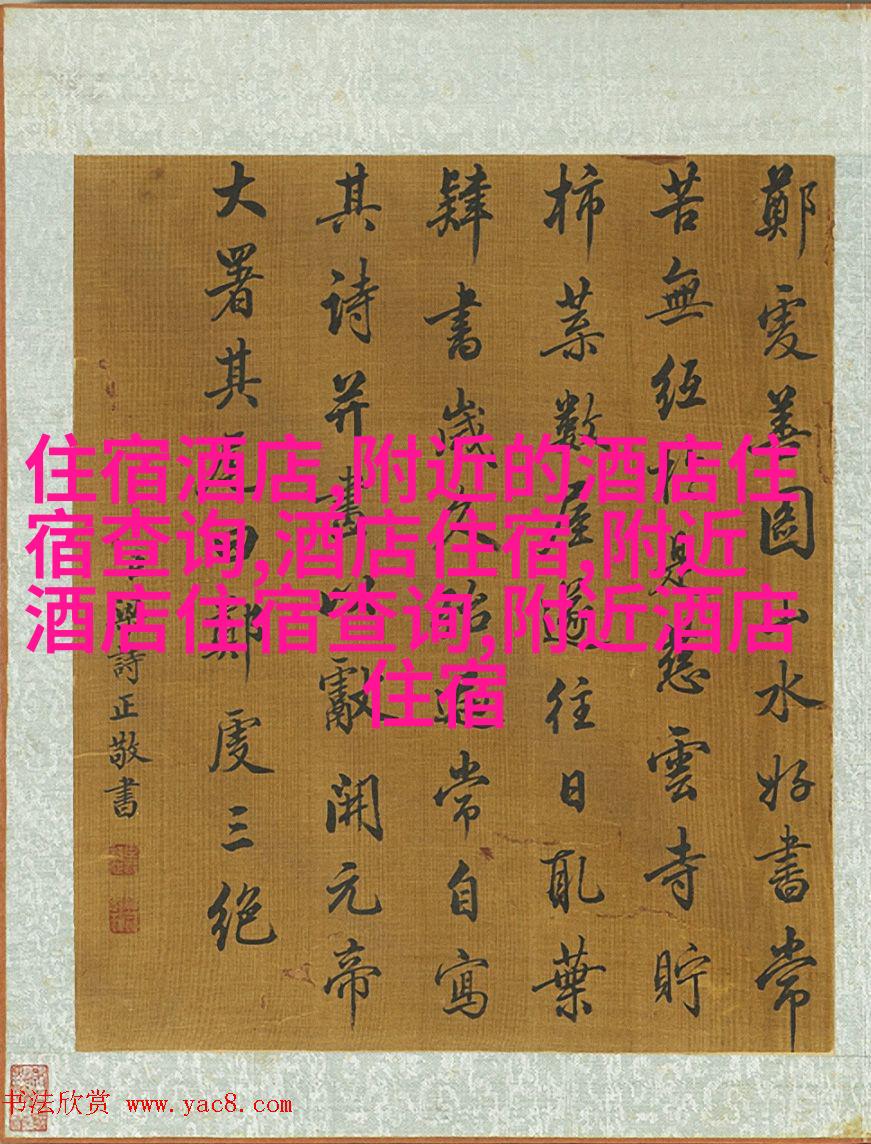 鄭虔善圖山水好書常
苦無紙於是慈雲寺貯
柿葉數屋遂往日取葉
肄書歲久殆遍常自寫
其詩并畫以獻開元帝
大署其尾曰鄭虔三絕
臣梁詩正敬書
住宿酒店,附近的酒店住
宿查询,酒店住宿,附近
酒店住宿查询,附近酒店
住宿
书法欣赏 www.yac8.com